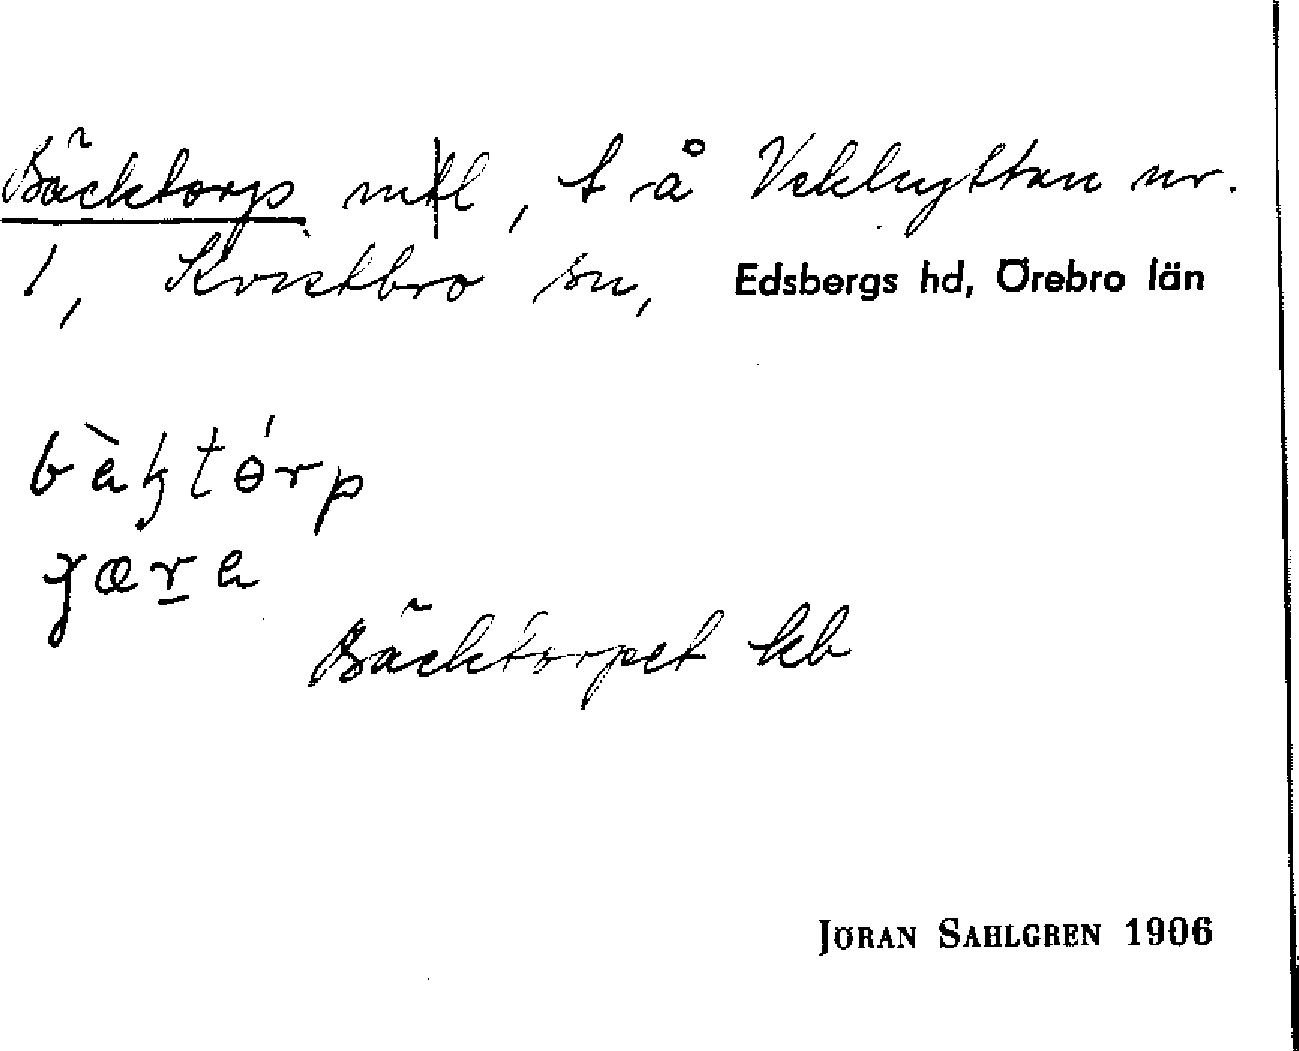 Bäcktorp mtl, t å Vekhyttan nr.
1, Kvistbro sn, Edsbergs hd, Örebro län
bàktórp
Bäcktorpet kb
JÖRAN SAHLGREN 1906